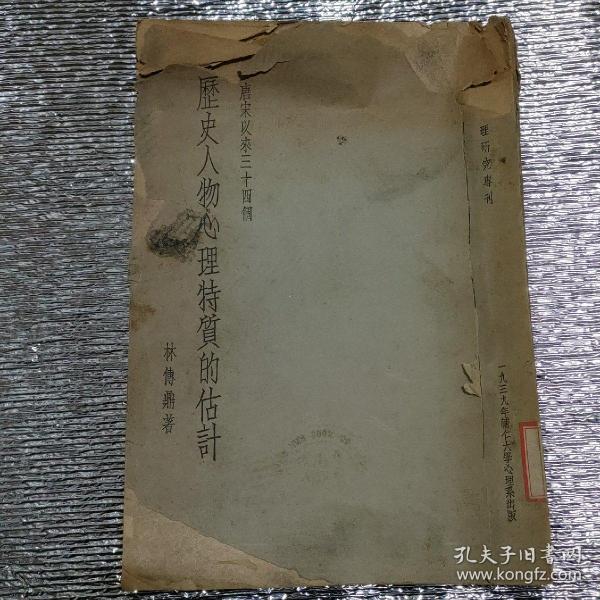 理研究專刊
一九三九年輔仁大學心理系出版
唐宋以來三十四個
歷史人物心理特質的估計
林傳鼎著
孔夫子旧书网
www.kongfz.com